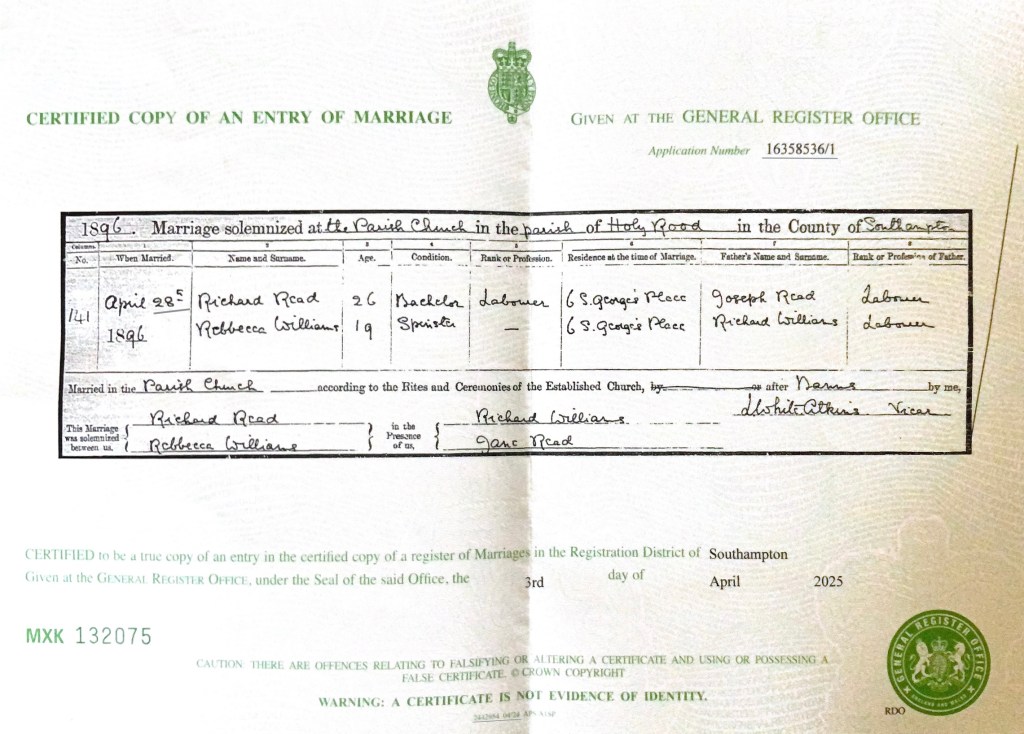 CERTIFIED COPY OF AN ENTRY OF MARRIAGE
GIVEN AT THE GENERAL REGISTER OFFICE
Application Number 16358536/1
1896. Marriage solemnized at the Parish Church in the parish of Holy Rood in the County of Southampton
Columns. 1 2 3 4 5 6 7 8
No. When Married. Name and Surname. Age. Condition. Rank or Profession. Residence at the time of Marriage. Father's Name and Surname. Rank or Profession of Father.
141 April 28 Richard Read 26 Bachelor Labourer 6 S. George's Place Joseph Read Labourer
1896 Rebbecca Williams 19 Spinster — 6 S. George's Place Richard Williams Labourer
Married in the Parish Church according to the Rites and Ceremonies of the Established Church, by or after Banns by me,
This Marriage was solemnized between us, Richard Read in the Presence of us, Richard Williams J White Atkins Vicar
Rebbecca Williams Jane Read
CERTIFIED to be a true copy of an entry in the certified copy of a register of Marriages in the Registration District of Southampton
Given at the GENERAL REGISTER OFFICE, under the Seal of the said Office, the 3rd day of April 2025
MXK 132075
CAUTION: THERE ARE OFFENCES RELATING TO FALSIFYING OR ALTERING A CERTIFICATE AND USING OR POSSESSING A
FALSE CERTIFICATE. © CROWN COPYRIGHT
WARNING: A CERTIFICATE IS NOT EVIDENCE OF IDENTITY.
GENERAL REGISTER OFFICE
ENGLAND AND WALES
RDO